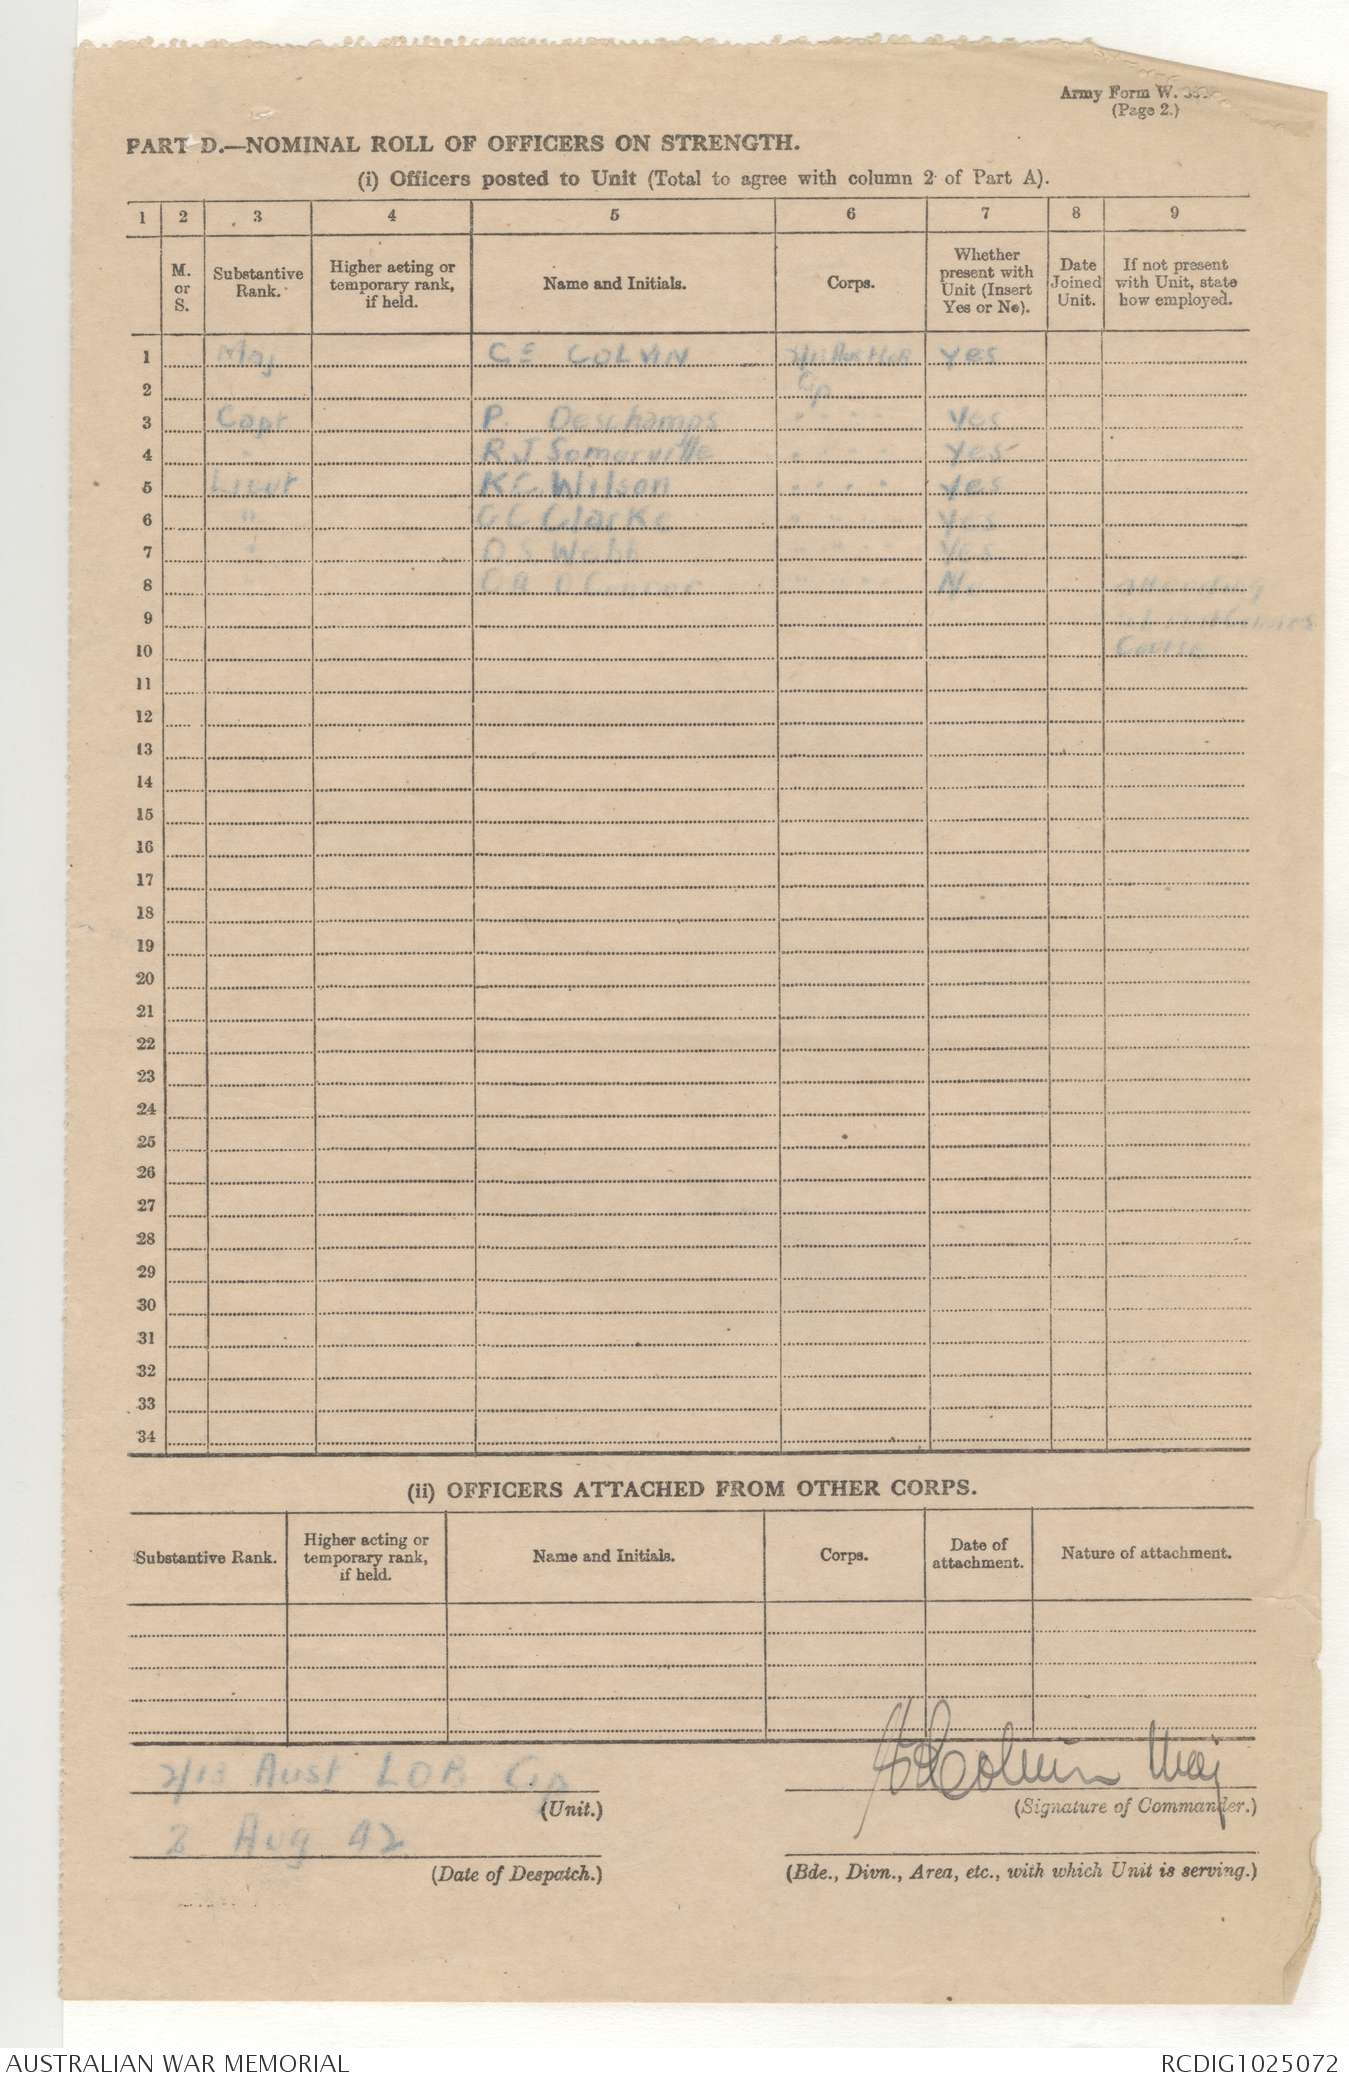 Army Form W.
(Page 2.)
PART D.—NOMINAL ROLL OF OFFICERS ON STRENGTH.
(i) Officers posted to Unit (Total to agree with column 2 of Part A).
1 2 3 4 5 6 7 8 9
M. or S. Substantive Rank. Higher acting or temporary rank, if held. Name and Initials. Corps. Whether present with Unit (Insert Yes or No). Date Joined Unit. If not present with Unit, state how employed.
1 Maj C E COLVIN yes
2 Gp
3 Capt P. Deschamps " " " " Yes
4 " R J Somerville " " " " Yes
5 Lieut K C Wilson " " " " yes
6 " G C Clarke " " " " Yes
7 " D S Webb " " " " Yes
8 C A O Connor " " " " No attending
9
10 Course
11
12
13
14
15
16
17
18
19
20
21
22
23
24
25
26
27
28
29
30
31
32
33
34
(ii) OFFICERS ATTACHED FROM OTHER CORPS.
Substantive Rank. Higher acting or temporary rank, if held. Name and Initials. Corps. Date of attachment. Nature of attachment.
2/13 Aust LOB Gp Colvin Maj
(Unit.) (Signature of Commander.)
2 Aug 42
(Date of Despatch.) (Bde., Divn., Area, etc., with which Unit is serving.)
AUSTRALIAN WAR MEMORIAL RCDIG1025072